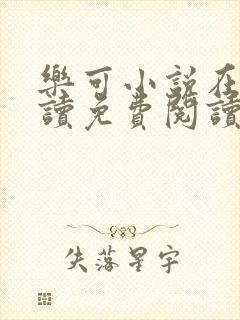 樂可小說在
讀免費閱讀
失落星宇